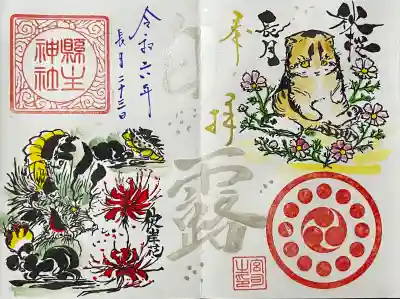 秋桜
長月
奉拝
白露
令和六年
長月二十三日
縣主
神社
彼岸花